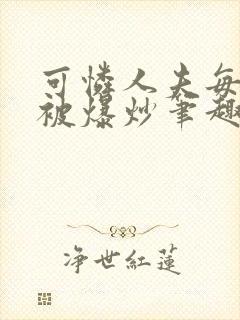 可憐人夫每
被爆炒筆趣
净世紅蓮